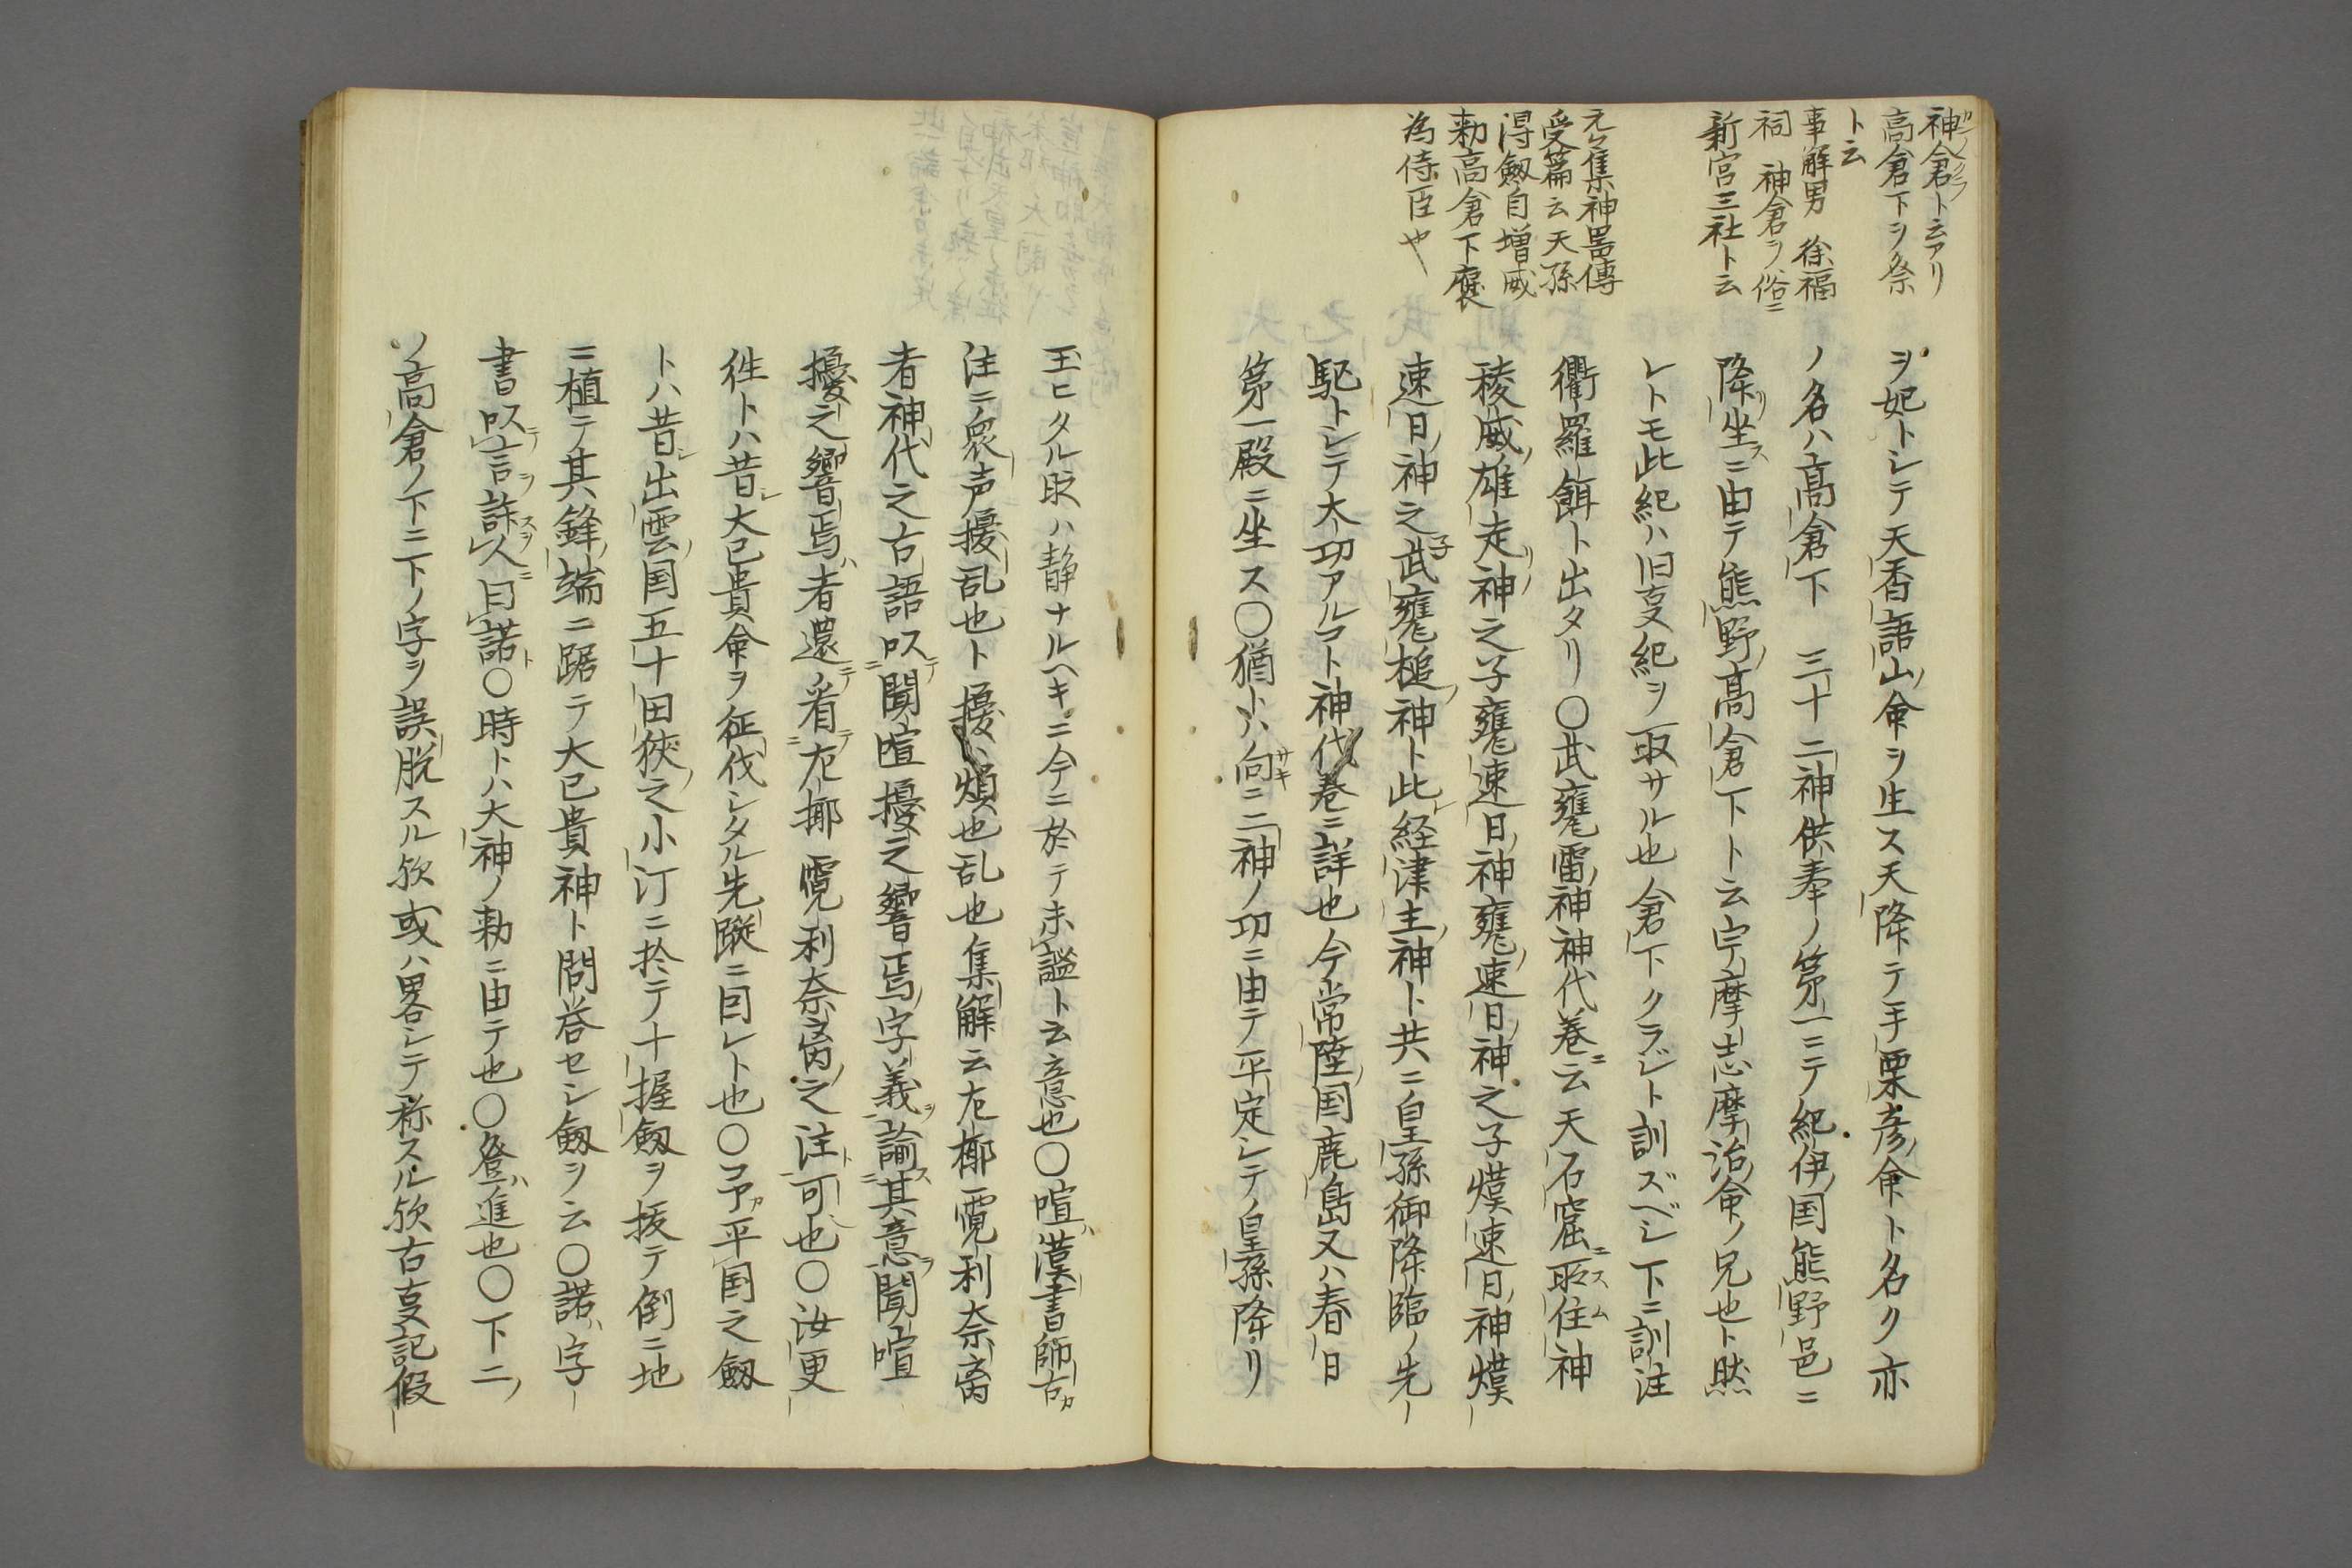 神倉ト云アリ
高倉下ヲ祭
ト云
事解男 徐福
祠 神倉ヲ俗ニ
新宮三社ト云
元々集神器傳
受篇云天孫
得劔自増威
勅高倉下褒
為侍臣也
ヲ妃トシテ天香語山命ヲ生ス天降テ手栗彦命ト名ク亦
ノ名ハ高倉下 三十二神供奉ノ第一ニテ紀伊国熊野邑ニ
降坐ニ由テ熊野高倉下ト云宇摩志摩治命ノ兄也ト然
レトモ此紀ハ旧事紀ヲ取サル也倉下クラジト訓ズベシ下ニ訓注
衢羅餌ト出タリ〇武甕雷神神代巻云天石窟所住神
稜威雄走神之子甕速日神甕速日神之子熯速日神熯
速日神之子武甕槌神ト此経津主神ト共ニ皇孫御降臨ノ先
駈トシテ大功アルコト神代巻ニ詳也今常陸国鹿島又ハ春日
第一殿ニ坐ス〇猶トハ向ニ二神ノ功ニ由テ平定シテノ皇孫降リ
玉ヒタル故ハ静ナルヘキニ今ニ於テ未謐ト云意也〇喧漢書師古カ
注ニ衆声擾乱也ト擾ハ煩也乱也集解云左椰霓利奈離
者神代之古語以聞喧擾之響焉字義諭其意聞喧
擾之響焉者還看左揶霓利奈離之注可也〇汝更
往トハ昔大己貴命ヲ征伐シタル先蹤ニ因レト也〇予平国之劔
トハ昔出雲国五十田狭之小汀ニ於テ十握劔ヲ抜テ倒ニ地
ニ植テ其鋒端ニ踞テ大己貴神ト問答セシ劔ヲ云〇諾字
書以言許人曰諾〇時トハ大神ノ勅ニ由テ也〇登進也〇下ニ
ノ高倉ノ下ニ下ノ字ヲ誤脱スル欤或ハ畧シテ称スル欤古事記假